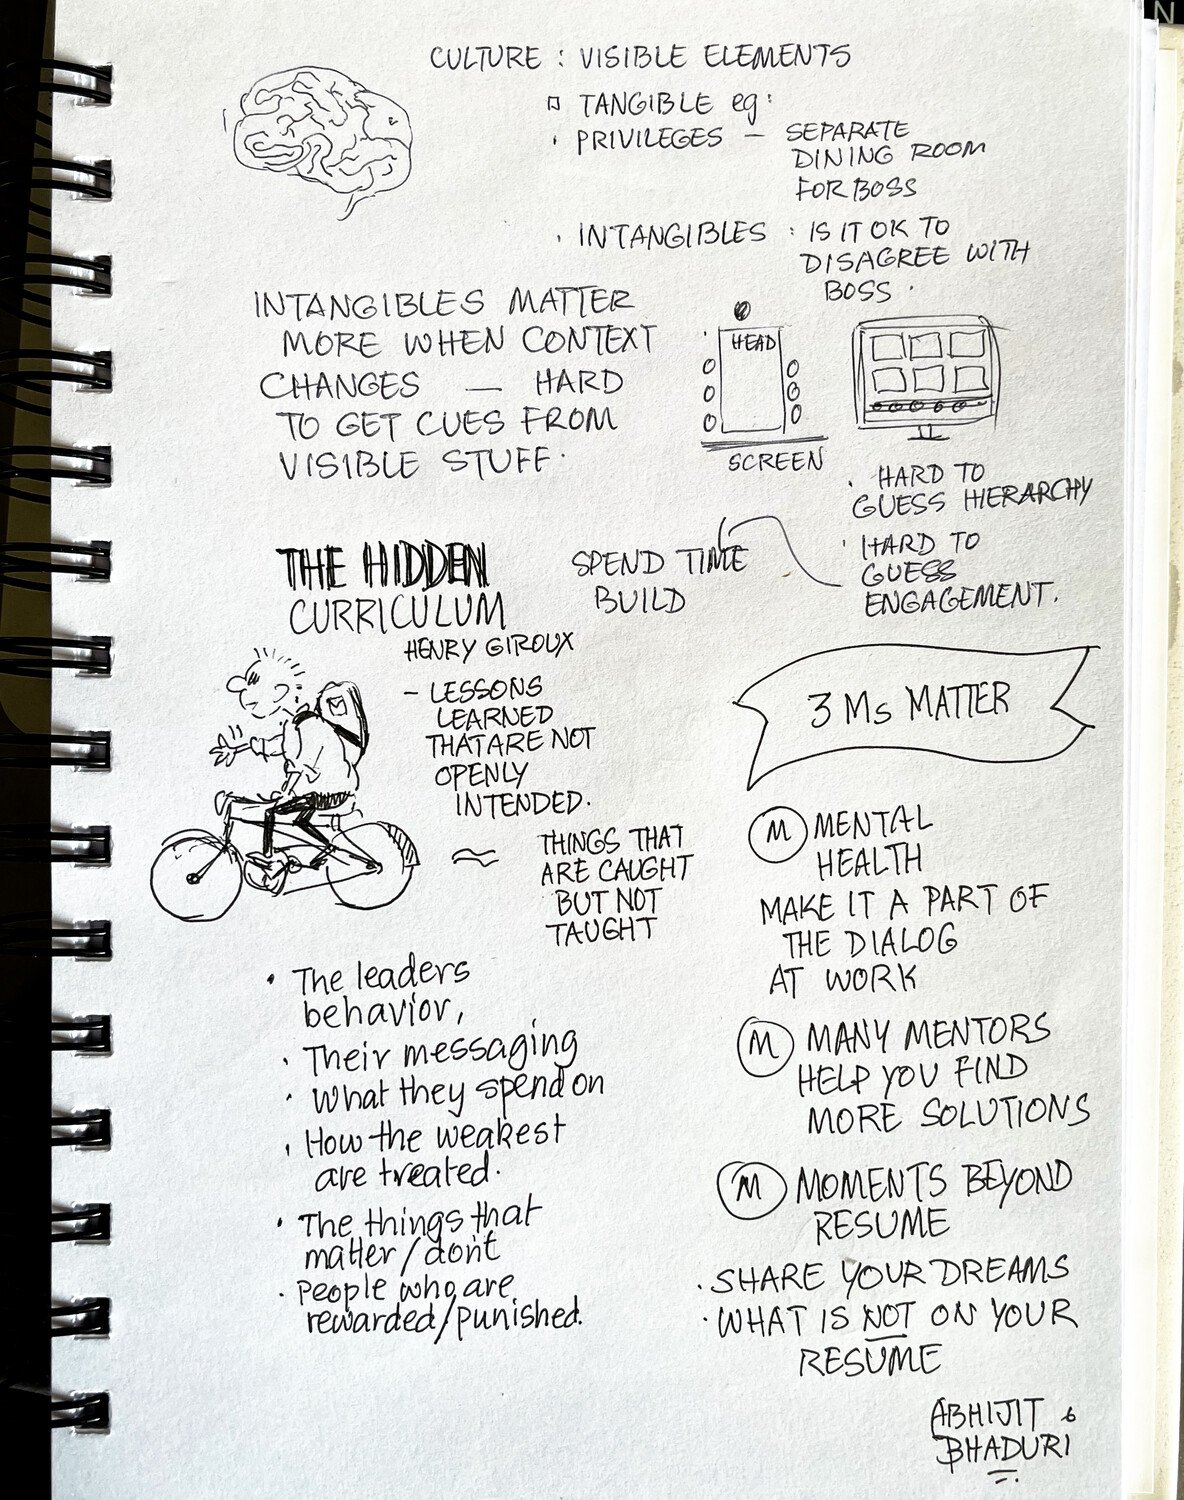 CULTURE : VISIBLE ELEMENTS
TANGIBLE eg:
· PRIVILEGES — SEPARATE
DINING ROOM
FOR BOSS
· INTANGIBLES : IS IT OK TO
DISAGREE WITH
BOSS.
INTANGIBLES MATTER
MORE WHEN CONTEXT
CHANGES — HARD
TO GET CUES FROM
VISIBLE STUFF.
HEAD
SCREEN
· HARD TO
GUESS HIERARCHY
· HARD TO
GUESS
ENGAGEMENT.
SPEND TIME
BUILD
THE HIDDEN
CURRICULUM
HENRY GIROUX
- LESSONS
LEARNED
THAT ARE NOT
OPENLY
INTENDED.
≈ THINGS THAT
ARE CAUGHT
BUT NOT
TAUGHT
· The leaders
behavior,
· Their messaging
· What they spend on
· How the weakest
are treated.
· The things that
matter/don't
· People who are
rewarded/punished.
3 Ms MATTER
M MENTAL
HEALTH
MAKE IT A PART OF
THE DIALOG
AT WORK
M MANY MENTORS
HELP YOU FIND
MORE SOLUTIONS
M MOMENTS BEYOND
RESUME
· SHARE YOUR DREAMS
· WHAT IS NOT ON YOUR
RESUME
ABHIJIT
BHADURI
N